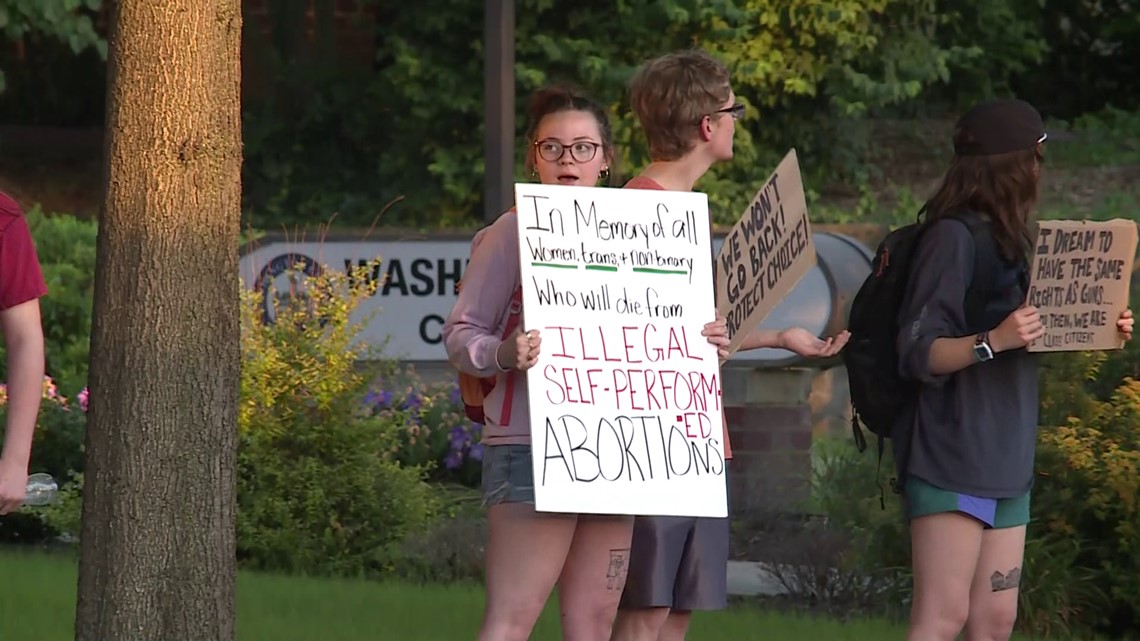 In Memory of all
Women, trans, + non-binary
Who will die from
ILLEGAL
SELF-PERFORM-
ED
ABORTIONS
WE WON'T
GO BACK!
PROTECT CHOICE!
I DREAM TO
HAVE THE SAME
RIGHTS AS GUNS...
THEN, WE ARE
CLASS CITIZENS
WASH
C